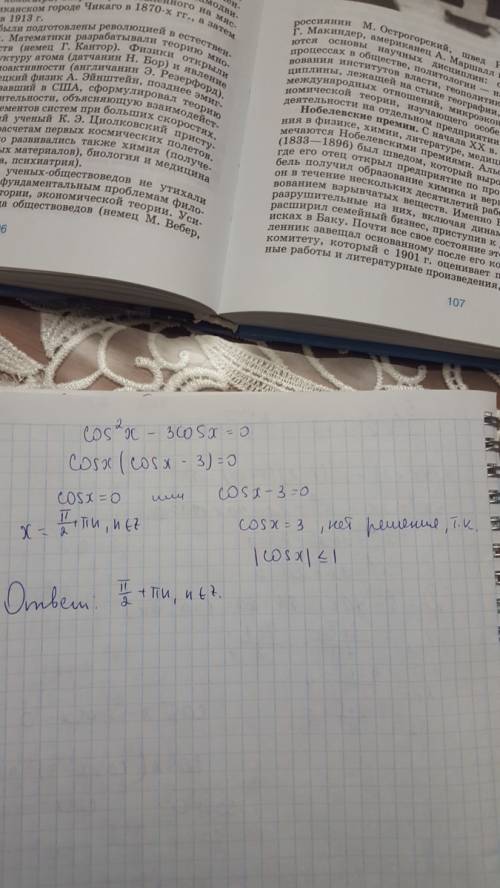 иканском городе Чикаго в 1870-х гг., а затем
в 1913 г.
были подготовлены революцией в естествен-
Математики разрабатывали теорию мно-
ств (немец Г. Кантор). Физики открыли
уктуру атома (датчанин Н. Бор) и явление
иоактивности (англичанин Э. Резерфорд).
ецкий физик А. Эйнштейн, позднее эмиг-
вавший в США, сформулировал теорию
ительности, объясняющую взаимодейст-
ементов систем при больших скоростях.
ий ученый К. Э. Циолковский присту-
расчетам первых космических полетов.
но развивались также химия (получе-
ых материалов), биология и медицина
а, психиатрия).
ученых-обществоведов не утихали
фундаментальным проблемам фило-
тории, экономической теории. Уси-
да обществоведов (немец М. Вебер,
06
россиянин М. Острогорский, швед
Г. Макиндер, американец А. Маршалл
ются основы научных дисциплин:
процессах в обществе, политологии —
вования институтов власти, геополити
циплины, лежащей на стыке географии,
международных отношений, микроэконо
номической теории, изучающей особе
деятельности на отдельном предприятии
Нобелевские премии. С начала XX в.
ния в физике, химии, литературе, медици
мечаются Нобелевскими премиями. Аль
(1833—1896) был шведом, который вы
где его отец открыл предприятие по про
бель получил образование химика и вер
он в течение нескольких десятилетий раб
вованием взрывчатых веществ. Именно
разрушительные из них, включая динам
расширил семейный бизнес, приступив к
исках в Баку. Почти все свое состояние
ленник завещал основанному после его ко
комитету, который с 1901 г. оценивает
ные работы и литературные произведения.
107
cos²x - 3cosx = 0
cosx(cosx - 3) = 0
cosx = 0 или cosx - 3 = 0
x = π/2 + πn, n∈z cosx = 3, нет решения, т.к.
|cosx| ≤ 1
Ответ: π/2 + πn, n∈z.